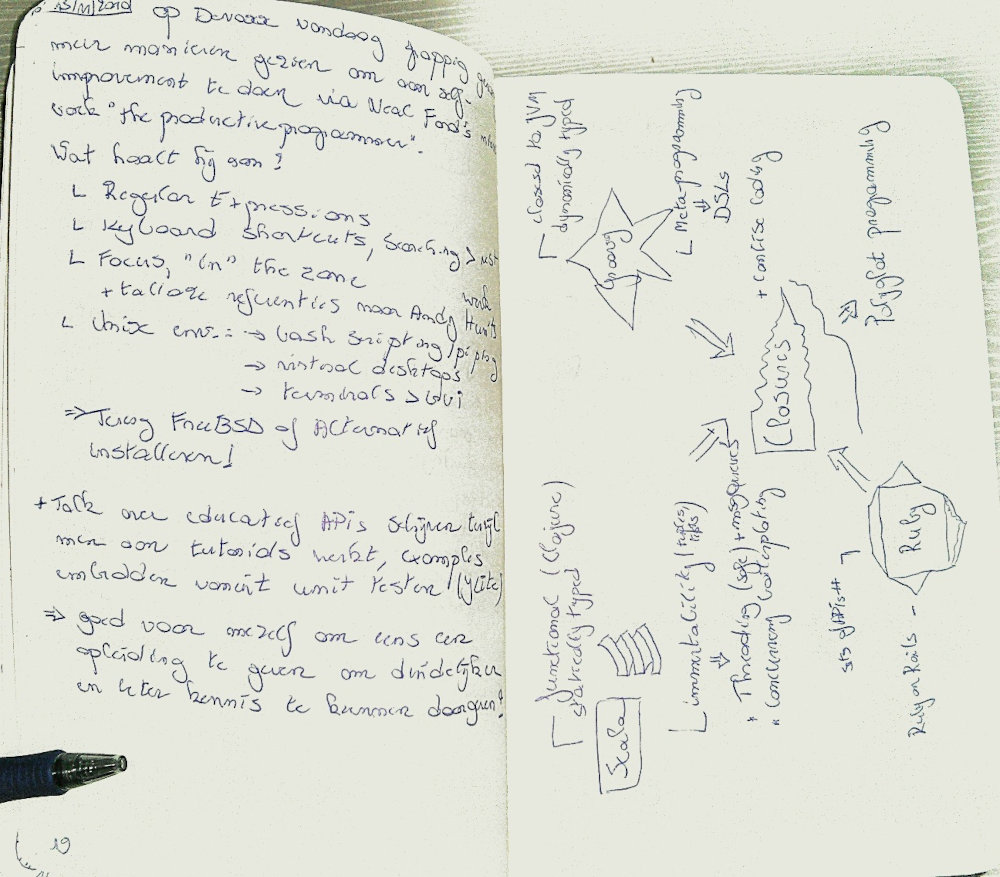 15/11/2010 op Devoxx vandaag grappig
meer manieren gezien om aan self-
improvement te doen via Neal Ford's
work "the productive programmer".
Wat haalt hij aan?
L Regular Expressions
L Keyboard shortcuts, Searching >
L Focus, "in" the zone
+ talloze referenties naar Andy Hunt's work
L Unix env.: → bash scripting/piping
→ virtual desktops
→ terminals > GUI
⇒ Terug FreeBSD of Alternatief
installeren!
+ Talk over educatief APIs schrijven terwijl
men aan tutorials werkt, examples
embedden vanuit unit testen
⇒ goed voor mezelf om eens een
opleiding te geven om duidelijker
en beter kennis te kunnen doorgeven!
19
closest to JVM
dynamically typed
Groovy
L Meta-programming
⇓
DSLs
+ concise coding
Closures
⇒ Polyglot programming
functional (Clojure)
statically typed
Scala
L immutability (tuples,
⇓
* Threading (safe) + msg queues
* concurrency
Ruby
Ruby on Rails -